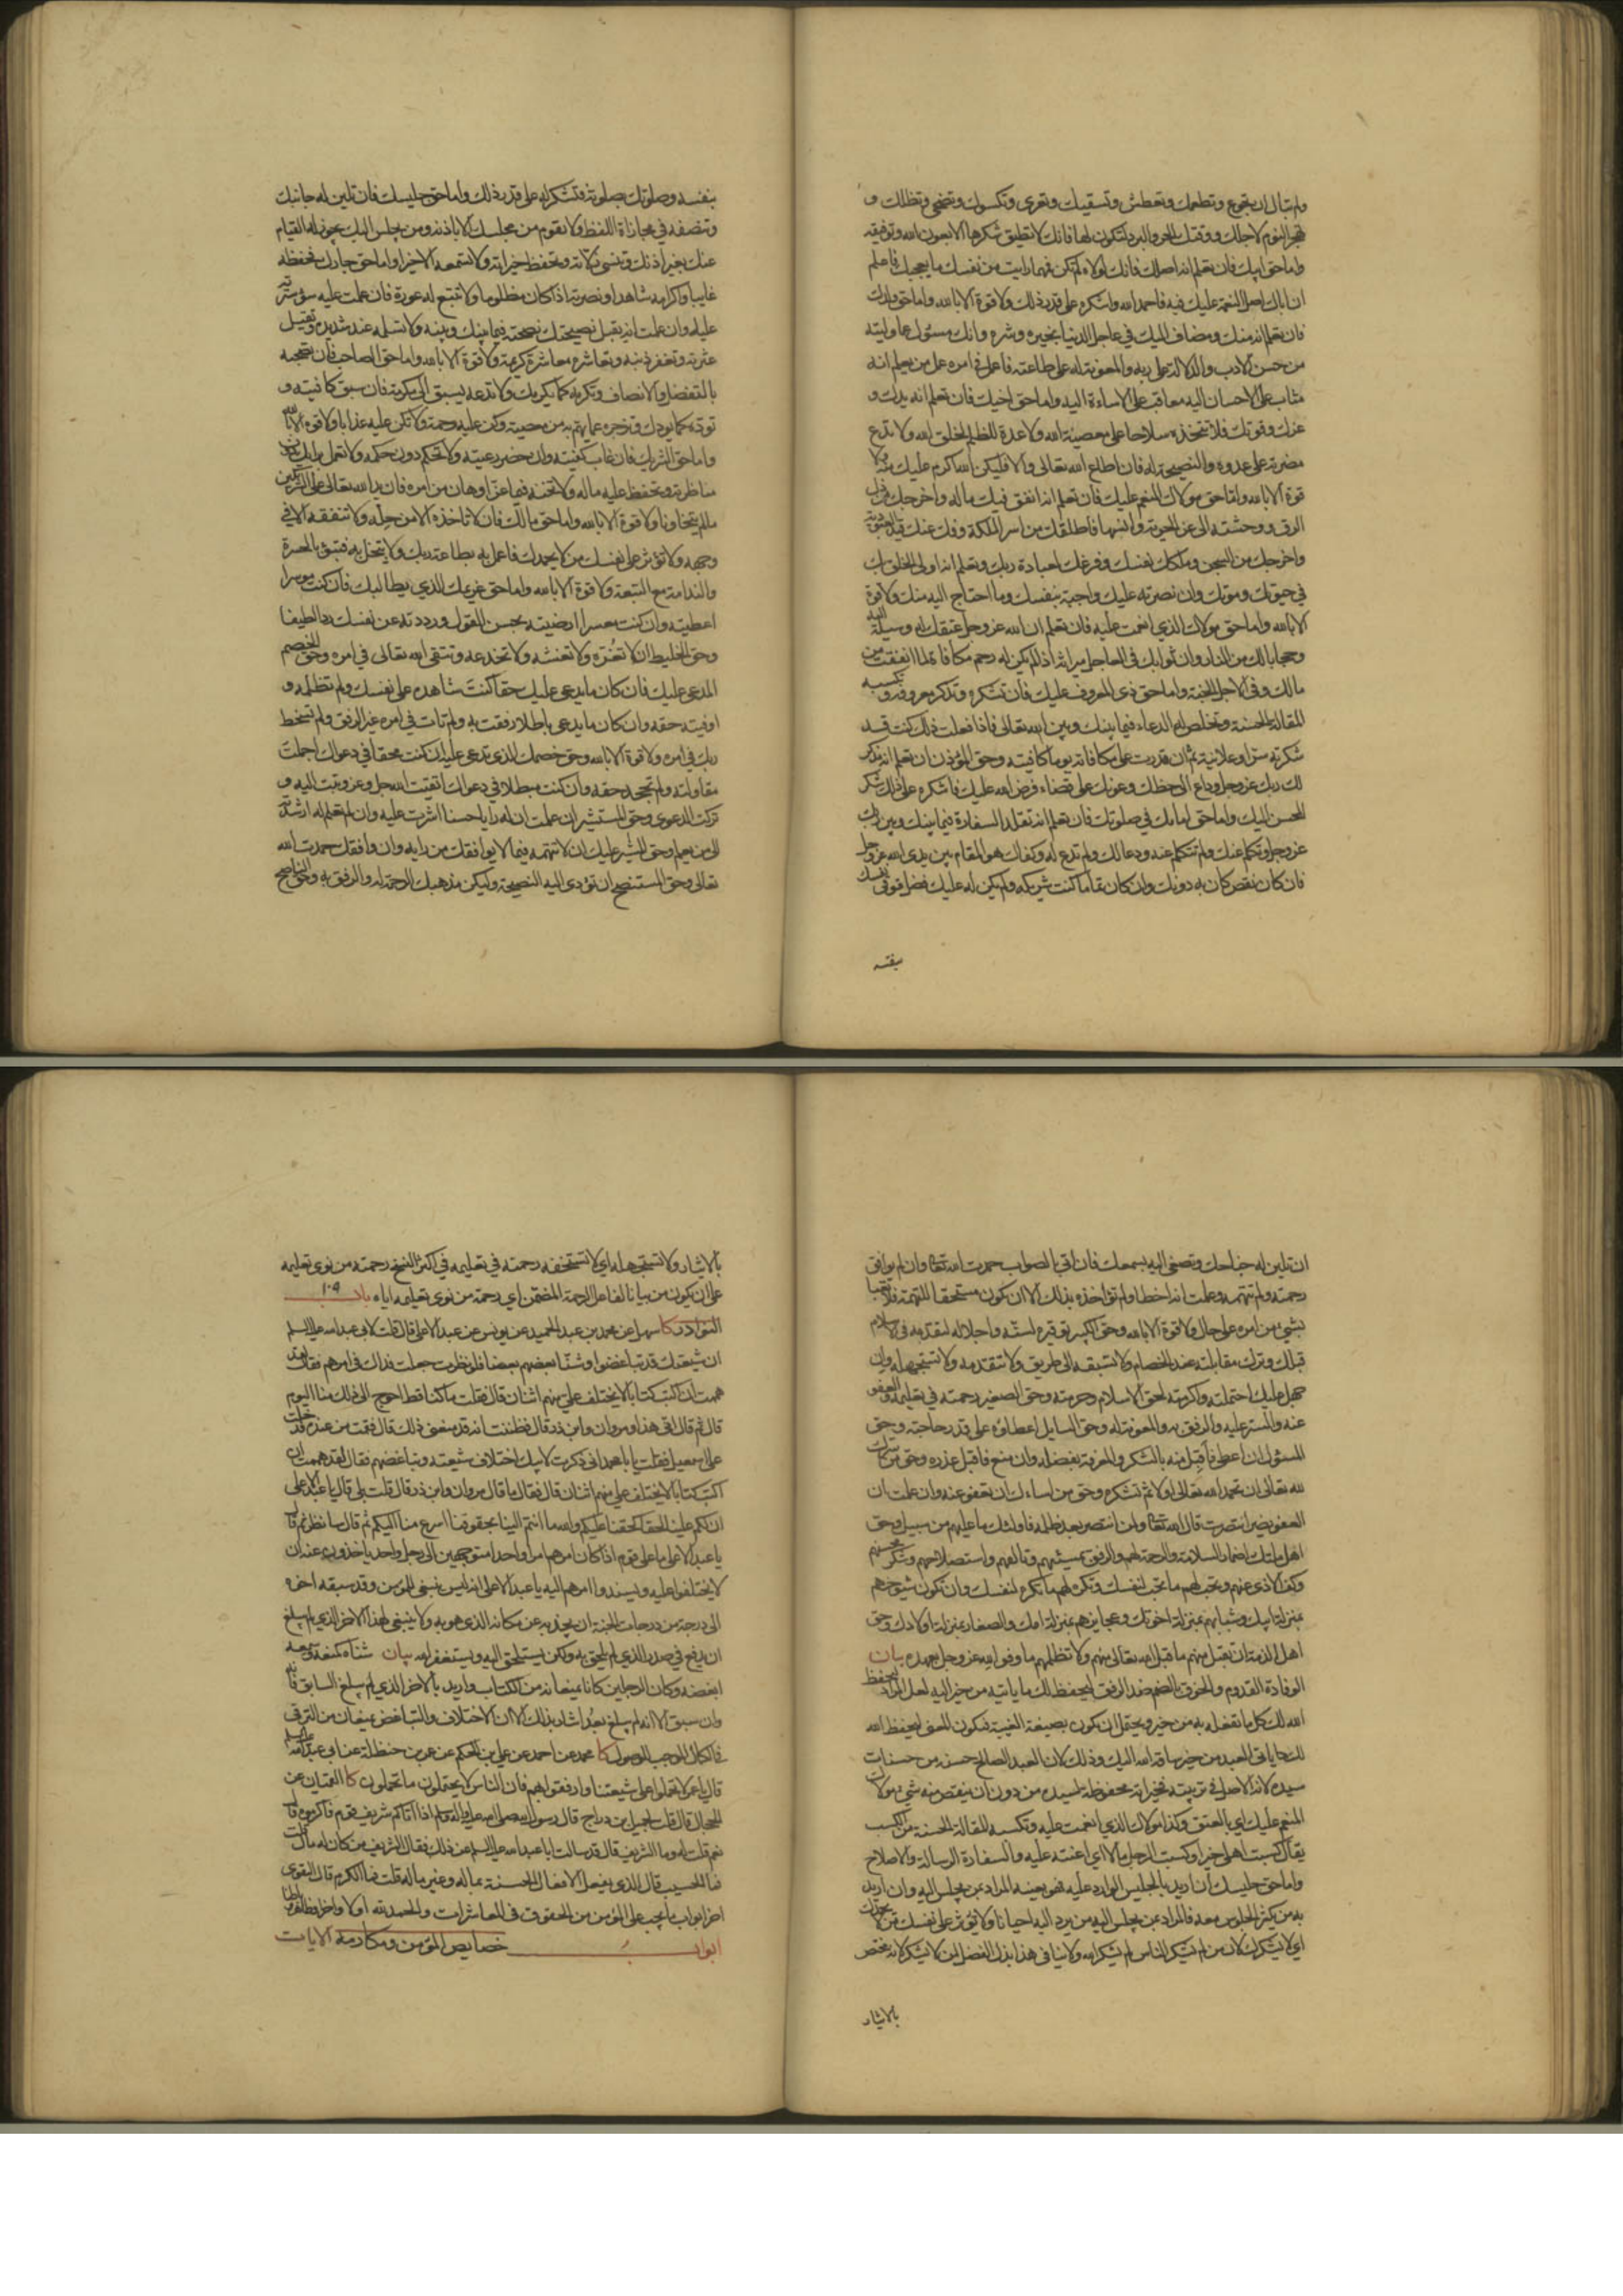 ولم تبال ان تجوع وتطعمك وتعطش وتسقيك وتعرى وتكسوك وتضحى وتظلك و
تهجر النوم لاجلك ووقتك الحر والبرد لتكون لها فانك لا تطيق شكرها الا بعون الله وتوفيقه
واما حق ابيك فان تعلم انه اصلك فانك لولاه لم تكن فمهما رايت من نفسك ما يعجبك فاعلم
ان اباك اصل النعمة عليك فيه فاحمد الله واشكره على قدر ذلك ولا قوة الا بالله واما حق ولدك
فان تعلم انه منك ومضاف اليك في عاجل الدنيا بخيره وشره وانك مسئول عما وليته
من حسن الادب والدلالة على ربه والمعونة له على طاعته فاعمل في امره عمل من يعلم انه
مثاب على الاحسان اليه معاقب على الاساءة اليه واما حق اخيك فان تعلم انه يدك و
عزك وقوتك فلا تتخذه سلاحا على معصية الله ولا عدة للظلم لخلق الله ولا تدع
نصرته على عدوه والنصيحة له فان اطاع الله تعالى والا فليكن الله اكرم عليك منه ولا
قوة الا بالله واما حق مولاك المنعم عليك فان تعلم انه انفق فيك ماله واخرجك من ذل
الرق ووحشته الى عز الحرية وانسها فاطلقك من اسر الملكة وفك عنك قيد العبودية
واخرجك من السجن وملكك نفسك وفرغك لعبادة ربك وتعلم انه اولى الخلق بك
في حيوتك وموتك وان نصرته عليك واجبة بنفسك وما احتاج اليه منك ولا قوة
الا بالله واما حق مولاك الذي انعمت عليه فان تعلم ان الله عز وجل جعل عتقك له وسيلة اليه
وحجابا لك من النار وان ثوابك في العاجل ميراثه اذا لم يكن له رحم مكافاة لما انفقت من
مالك وفي الاجل الجنة واما حق ذي المعروف عليك فان تشكره وتذكر معروفه وتكسبه
المقالة الحسنة وتخلص له الدعاء فيما بينك وبين الله تعالى فاذا فعلت ذلك كنت قد
شكرته سرا وعلانية ثم ان قدرت على مكافاته يوما كافيته وحق المؤذن ان تعلم انه مذكر
لك ربك عز وجل وداع الى حظك وعونك على قضاء فرض الله عليك فاشكره على ذلك شكر
المحسن اليك واما حق امامك في صلوتك فان تعلم انه تقلد السفارة فيما بينك وبين ربك
عز وجل وتكلم عنك ولم تتكلم عنه ودعا لك ولم تدع له وكفاك هول المقام بين يدي الله عز وجل
فان كان نقص كان به دونك وان كان تماما كنت شريكه ولم يكن له عليك فضل فوقى نفسك
بنفسه
بنفسه وصلوتك بصلوته فتشكر له على قدر ذلك واما حق جليسك فان تلين له جانبك
وتنصفه في مجازاة اللفظ ولا تقوم من مجلسك الا باذنه ومن يجلس اليك يجوز له القيام
عنك بغير اذنك وتنسى زلاته وتحفظ خيراته ولا تسمعه الا خيرا واما حق جارك فحفظه
غايبا واكرامه شاهدا ونصرته اذا كان مظلوما ولا تتبع له عورة فان علمت عليه سوء سترته
عليه وان علمت انه يقبل نصيحتك نصحته فيما بينك وبينه ولا تسلمه عند شديدة وتقيل
عثرته وتغفر ذنبه وتعاشره معاشرة كريمة ولا قوة الا بالله واما حق الصاحب فان تصحبه
بالتفضل والانصاف وتكرمه كما يكرمك ولا تدعه يسبق الى مكرمة فان سبق كافيته و
توده كما يودك وتزجره عما يهم به من معصية وكن عليه رحمة ولا تكن عليه عذابا ولا قوة الا بالله
واما حق الشريك فان غاب كفيته وان حضر رعيته ولا تحكم دون حكمه ولا تعمل برايك دون
مناظرته وتحفظ عليه ماله ولا تخنه فيما عز او هان من امره فان يد الله تعالى على الشريكين
ما لم يتخاونا ولا قوة الا بالله واما حق مالك فان لا تاخذه الا من حله ولا تنفقه الا في
وجهه ولا تؤثر على نفسك من لا يحمدك فاعمل به بطاعة ربك ولا تبخل به فتبوء بالحسرة
والندامة مع التبعة ولا قوة الا بالله واما حق غريمك الذي يطالبك فان كنت موسرا
اعطيته وان كنت معسرا ارضيته بحسن القول ورددته عن نفسك ردا لطيفا
وحق الخليط ان لا تغره ولا تغشه ولا تخدعه وتتقي الله تعالى في امره وحق الخصم
المدعي عليك فان كان ما يدعي عليك حقا كنت شاهده على نفسك ولم تظلمه و
اوفيته حقه وان كان ما يدعي باطلا رفقت به ولم تات في امره غير الرفق ولم تسخط
ربك في امره ولا قوة الا بالله وحق خصمك الذي تدعي عليه ان كنت محقا في دعواك اجملت
مقاولته ولم تجحد حقه وان كنت مبطلا في دعواك اتقيت الله جل وعز وتبت اليه و
تركت الدعوى وحق المستشير ان علمت ان له رايا حسنا اشرت عليه وان لم تعلم له ارشدته
الى من يعلم وحق المشير عليك ان لا تتهمه فيما لا يوافقك من رايه وان وافقك حمدت الله
تعالى وحق المستنصح ان تؤدي اليه النصيحة وليكن مذهبك الرحمة له والرفق به وحق الناصح
ان تلين له جناحك وتصغي اليه بسمعك فان اتى بالصواب حمدت الله تعالى وان لم يوافق
رحمته ولم تتهمه وعلمت انه اخطا ولم تؤاخذه بذلك الا ان يكون مستحقا للتهمة فلا تعبا
بشيء من امره على حال ولا قوة الا بالله وحق الكبير توقيره لسنه واجلاله لتقدمه في الاسلام
قبلك وترك مقابلته عند الخصام ولا تسبقه الى طريق ولا تتقدمه ولا تستجهله وان
جهل عليك احتملته واكرمته لحق الاسلام وحرمته وحق الصغير رحمته في تعليمه والعفو
عنه والستر عليه والرفق به والمعونة له وحق السايل اعطاؤه على قدر حاجته وحق
المسئول ان اعطى فاقبل منه بالشكر والمعرفة بفضله وان منع فاقبل عذره وحق من سرك
لله تعالى ان تحمد الله تعالى اولا ثم تشكره وحق من اساءك ان تعفو عنه وان علمت ان
العفو يضر انتصرت قال الله تعالى ولمن انتصر بعد ظلمه فاولئك ما عليهم من سبيل وحق
اهل ملتك اضمار السلامة والرحمة لهم والرفق بمسيئهم وتالفهم واستصلاحهم وشكر محسنهم
وكف الاذى عنهم وتحب لهم ما تحب لنفسك وتكره لهم ما تكره لنفسك وان تكون شيوخهم
بمنزلة ابيك وشبابهم بمنزلة اخوتك وعجايزهم بمنزلة امك والصغار بمنزلة اولادك وحق
اهل الذمة ان تقبل منهم ما قبل الله تعالى منهم ولا تظلمهم ما وفوا لله عز وجل بعهده بيان
الوفادة القدوم والخرق بالضم ضد الرفق ليحفظ لك ما ياتيه من خير اليه لعل المراد ليحفظ
الله لك كل ما تفعله به من خير ويحتمل ان يكون بصيغة الغيبة فيكون المعنى ليحفظ الله
لك ما ياتي العبد من خير ساقه الله اليك وذلك لان العبد الصالح حسنة من حسنات
سيده لانه الاصل في تربيته فخيراته محفوظة لسيده من دون ان ينقص منه شيء مولاك
المنعم عليك اي بالعتق وكذا مولاك الذي انعمت عليه وتكسبه المقالة الحسنة من الكسب
يقال كسبت اهلي خيرا وكسبت الرجل مالا اي اعنته عليه والسفارة الرسالة والاصلاح
واما حق جليسك ان اريد بالجليس الوارد عليه فهو بعينه المراد بمن يجلس اليه وان اريد
به من يكثر الجلوس معه فالمراد بمن يجلس اليه من يرد اليه احيانا ولا تؤثر على نفسك من لا يحمدك
اي لا يشكرك لان من لم يشكر الناس لم يشكر الله ولا ينافي هذا بذل الفضل لمن لا يشكر لانه مختص
بالايثار
بالايثار ولا تستجهله اي لا تستخفه رحمته في تعليمه في اكثر النسخ رحمته من نوى تعليمه
على ان يكون من بيانا لفاعل الرحمة المضمن اي رحمة من نوى تعليمه اياه باب ١٠٩
النوادر كا سهل عن محمد بن عبد الحميد عن يونس عن عبد الاعلى قال قلت لابي عبد الله عليه السلم
ان شيعتك قد تباغضوا وشنا بعضهم بعضا فلو نظرت جعلت فداك في امرهم فقال لقد
هممت ان اكتب كتابا لا يختلف علي منهم اثنان قال فقلت ما كنا قط احوج الى ذلك منا اليوم
قال ثم قال انى هذا ومروان وابن ذر قال فظننت انه قد منعني ذلك قال فقمت من عنده فدخلت
على اسمعيل فقلت يا با محمد اني ذكرت لابيك اختلاف شيعته وتباغضهم فقال لقد هممت ان
اكتب كتابا لا يختلف علي منهم اثنان قال فقال ما قال مروان وابن ذر قال قلت بلى قال يا عبد الاعلى
ان لكم علينا لحقا كحقنا عليكم والله ما انتم الينا بحقوقنا اسرع منا اليكم ثم قال سانظر ثم قال
يا عبد الاعلى ما على قوم اذا كان امرهم امرا واحدا متوجهين الى رجل واحد ياخذون عنه ان
لا يختلفوا عليه ويسندوا امرهم اليه يا عبد الاعلى انه ليس ينبغي للمؤمن وقد سبقه اخوه
الى درجة من درجات الجنة ان يجذبه عن مكانه الذي هو به ولا ينبغي لهذا الاخر الذي لم يبلغ
ان يدفع في صدر الذي لم يلحق به ولكن يستلحق اليه ويستغفر الله بيان شناه كمنعه وسمعه
ابغضه وكان الرجلين كانا يمنعانه من الكتاب واريد بالاخر الذي لم يبلغ السابق فانه
وان سبق الا انه لم يبلغ بعد اشار بذلك الا ان الاختلاف والتباغض يمنعان من الترقي
في الكمال الموجب للوصول كا محمد عن احمد عن علي بن الحكم عن عمر بن حنظلة عن ابي عبد الله عليه السلم
قال يا عمر لا تحملوا على شيعتنا وارفقوا بهم فان الناس لا يحتملون ما تحملون كا العتيان عن
الحجال قال قلت لجميل بن دراج قال رسول الله صلى الله عليه واله وسلم اذا اتاكم شريف قوم فاكرموه قال
نعم قلت له وما الشريف قال قد سالت ابا عبد الله عليه السلم عن ذلك فقال الشريف من كان له مال قلت
فما الحسيب قال الذي يفعل الافعال الحسنة بماله وغير ماله قلت فما الكرم قال التقوى
اخر ابواب ما يجب على المؤمن من الحقوق في المعاشرات والحمد لله اولا واخرا وظاهرا وباطنا
ابواب خصايص المؤمن ومكارمه الايات